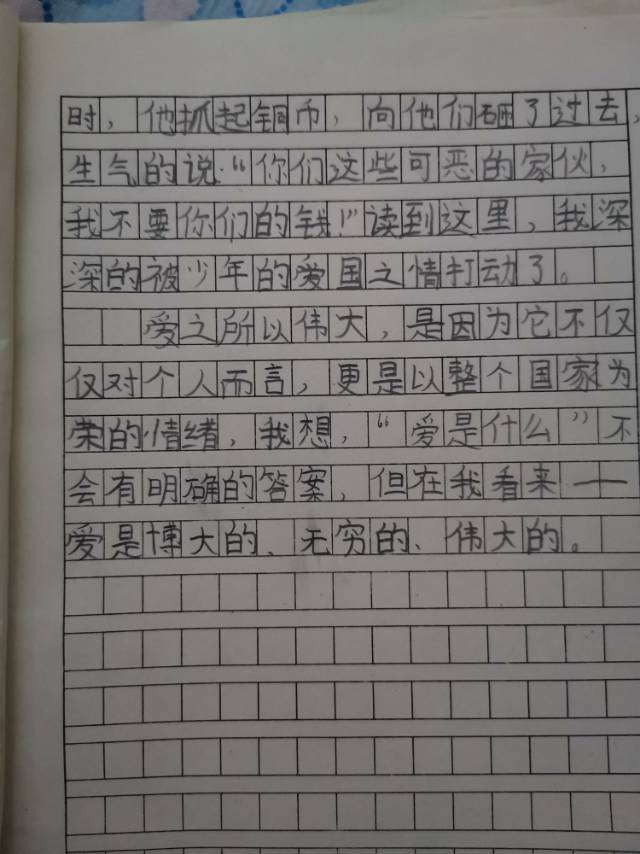 时，他抓起铜币，向他们砸了过去，
生气的说：“你们这些可恶的家伙，
我不要你们的钱！”读到这里，我深
深的被少年的爱国之情打动了。
爱之所以伟大，是因为它不仅
仅对个人而言，更是以整个国家为
荣的情绪，我想，“爱是什么”不
会有明确的答案，但在我看来——
爱是博大的、无穷的、伟大的。